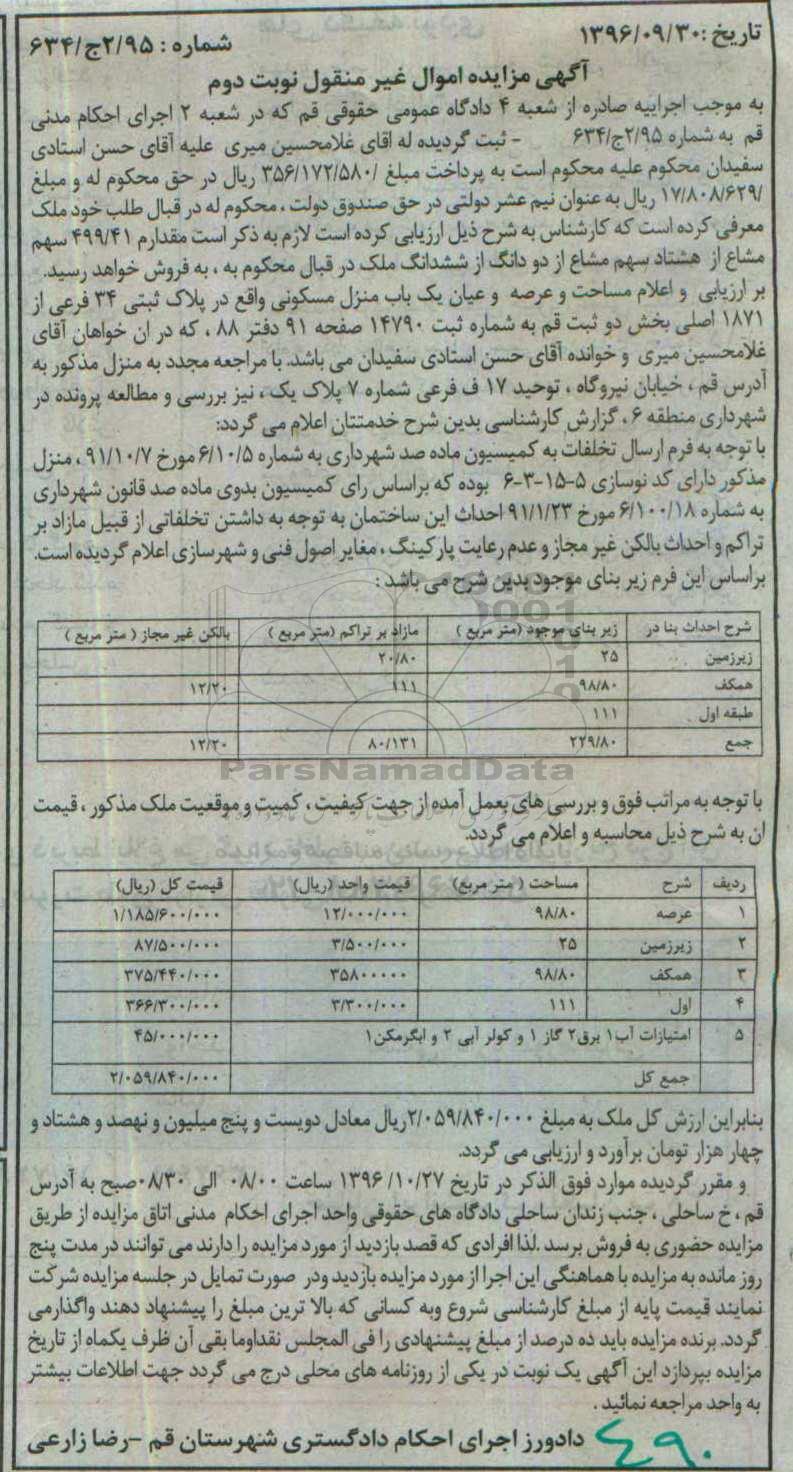 تاریخ :۱۳۹۶/۰۹/۳۰
شماره : ۲/۹۵ج/۶۳۴
آگهی مزایده اموال غیر منقول نوبت دوم
به موجب اجراییه صادره از شعبه ۴ دادگاه عمومی حقوقی قم که در شعبه ۲ اجرای احکام مدنی
قم به شماره ۲/۹۵ج/۶۳۴ - ثبت گردیده له اقای غلامحسین میری علیه آقای حسن استادی
سفیدان محکوم علیه محکوم است به پرداخت مبلغ /۳۵۶/۱۷۲/۵۸۰ ریال در حق محکوم له و مبلغ
/۱۷/۸۰۸/۶۲۹ ریال به عنوان نیم عشر دولتی در حق صندوق دولت ، محکوم له در قبال طلب خود ملک
معرفی کرده است که کارشناس به شرح ذیل ارزیابی کرده است لازم به ذکر است مقدارم ۴۹۹/۴۱ سهم
مشاع از هشتاد سهم مشاع از دو دانگ از ششدانگ ملک در قبال محکوم به ، به فروش خواهد رسید.
بر ارزیابی و اعلام مساحت و عرصه و عیان یک باب منزل مسکونی واقع در پلاک ثبتی ۳۴ فرعی از
۱۸۷۱ اصلی بخش دو ثبت قم به شماره ثبت ۱۴۷۹۰ صفحه ۹۱ دفتر ۸۸ ، که در ان خواهان آقای
غلامحسین میری و خوانده آقای حسن استادی سفیدان می باشد. با مراجعه مجدد به منزل مذکور به
آدرس قم ، خیابان نیروگاه ، توحید ۱۷ ف فرعی شماره ۷ پلاک یک ، نیز بررسی و مطالعه پرونده در
شهرداری منطقه ۶ ، گزارش کارشناسی بدین شرح خدمتتان اعلام می گردد:
با توجه به فرم ارسال تخلفات به کمیسیون ماده صد شهرداری به شماره ۶/۱۰/۵ مورخ ۹۱/۱۰/۷ ، منزل
مذکور دارای کد نوسازی ۵-۱۵-۳-۶ بوده که براساس رای کمیسیون بدوی ماده صد قانون شهرداری
به شماره ۶/۱۰۰/۱۸ مورخ ۹۱/۱/۲۳ احداث این ساختمان به توجه به داشتن تخلفاتی از قبیل مازاد بر
تراکم و احداث بالکن غیر مجاز و عدم رعایت پارکینگ ، مغایر اصول فنی و شهرسازی اعلام گردیده است.
براساس این فرم زیر بنای موجود بدین شرح می باشد :
شرح احداث بنا در زیر بنای موجود (متر مربع ) مازاد بر تراکم (متر مربع ) بالکن غیر مجاز ( متر مربع )
زیرزمین ۲۵ ۲۰/۸۰
همکف ۹۸/۸۰ ۱۱۱ ۱۲/۲۰
طبقه اول ۱۱۱
جمع ۲۲۹/۸۰ ۸۰/۱۳۱ ۱۲/۲۰
ParsNamadData
با توجه به مراتب فوق و بررسی های بعمل آمده از جهت کیفیت ، کمیت و موقعیت ملک مذکور ، قیمت
ان به شرح ذیل محاسبه و اعلام می گردد.
ردیف شرح مساحت ( متر مربع) قیمت واحد (ریال) قیمت کل (ریال)
۱ عرصه ۹۸/۸۰ ۱۲/۰۰۰/۰۰۰ ۱/۱۸۵/۶۰۰/۰۰۰
۲ زیرزمین ۲۵ ۳/۵۰۰/۰۰۰ ۸۷/۵۰۰/۰۰۰
۳ همکف ۹۸/۸۰ ۳۵۸۰۰۰۰۰ ۳۷۵/۴۴۰/۰۰۰
۴ اول ۱۱۱ ۳/۳۰۰/۰۰۰ ۳۶۶/۳۰۰/۰۰۰
۵ امتیازات آب۱ برق۲ گاز ۱ و کولر آبی ۲ و ابگرمکن۱ ۴۵/۰۰۰/۰۰۰
جمع کل ۲/۰۵۹/۸۴۰/۰۰۰
بنابراین ارزش کل ملک به مبلغ ۲/۰۵۹/۸۴۰/۰۰۰ریال معادل دویست و پنج میلیون و نهصد و هشتاد و
چهار هزار تومان برآورد و ارزیابی می گردد.
و مقرر گردیده موارد فوق الذکر در تاریخ ۱۳۹۶/۱۰/۲۷ ساعت ۰۸/۰۰ الی ۰۸/۳۰صبح به آدرس
قم ، خ ساحلی ، جنب زندان ساحلی دادگاه های حقوقی واحد اجرای احکام مدنی اتاق مزایده از طریق
مزایده حضوری به فروش برسد .لذا افرادی که قصد بازدید از مورد مزایده را دارند می توانند در مدت پنج
روز مانده به مزایده با هماهنگی این اجرا از مورد مزایده بازدید ودر صورت تمایل در جلسه مزایده شرکت
نمایند قیمت پایه از مبلغ کارشناسی شروع وبه کسانی که بالا ترین مبلغ را پیشنهاد دهند واگذارمی
گردد. برنده مزایده باید ده درصد از مبلغ پیشنهادی را فی المجلس نقداوما بقی آن ظرف یکماه از تاریخ
مزایده بپردازد این آگهی یک نوبت در یکی از روزنامه های محلی درج می گردد جهت اطلاعات بیشتر
به واحد مراجعه نمائید .
دادورز اجرای احکام دادگستری شهرستان قم -رضا زارعی
۴۹۰